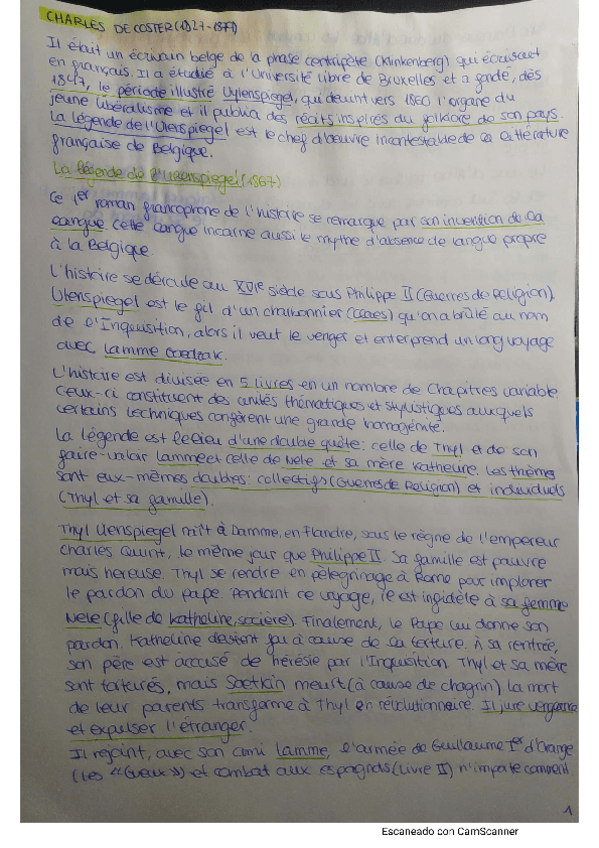 CHARLES DE COSTER (1827-1879)
Il était un écrivain belge de la phase centripète (Klinkenberg) qui écrivait
en français. Il a étudié à l'Université libre de Bruxelles et a fondé, dès
le période illustré Uylenspiegel, qui devint vers 1860 l'organe du
jeune libéralisme et il publia des récits inspirés du folklore de son pays.
La légende de l'Ulenspiegel est le chef d'oeuvre incontestable de la littérature
française de Belgique.
La légende de l'Ulenspiegel (1867)
Ce 1er roman francophone de l'histoire se remarque par son invention de la
langue. Cette langue incarne aussi le mythe d'absence de langue propre
à la Belgique.
L'histoire se déroule au XVIe siècle sous Philippe II (Guerres de Religion).
Ulenspiegel est le fil d'un charbonnier (Claes) qu'on a brûlé au nom
de l'Inquisition, alors il veut le venger et enterprend un long voyage
avec Lamme Goedzak.
L'histoire est divisée en 5 livres en un nombre de Chapitres variable
Ceux-ci constituent des unités thématiques et stylistiques auxquels
certains techniques confèrent une grande homogénité.
La légende est le lieu d'une double quête: celle de Thyl et de son
faire-valoir Lamme et celle de Nele et sa mère Katheline. Les thèmes
sont eux-mêmes doubles: collectifs (Guerres de Religion) et individuels
(Thyl et sa famille).
Thyl Ulenspiegel naît à Damme, en Flandre, sous le règne de l'empereur
Charles Quint, le même jour que Philippe II. Sa famille est pauvre
mais hereuse. Thyl se rendre en pèlegrinage à Rome pour implorer
le pardon du pape. Pendant ce voyage, il est infidèle à sa femme
Nele (fille de Katheline, socière). Finalement, le Pape lui donne son
pardon. Katheline devient fou à cause de sa torture. À sa rentrée,
son père est accusé de hérésie par l'Inquisition. Thyl et sa mère
sont torturés, mais Soetkin meurt (à cause de chagrin). La mort
de leur parents transforme à Thyl en révolutionnaire. Il jure vengeance
et expulser l'étranger.
Il rejoint, avec son ami Lamme, l'armée de Guillaume Ier d'Orange
(les «Gueux») et combat aux espagnols (Livre II) n'importe comment
1
Escaneado con CamScanner